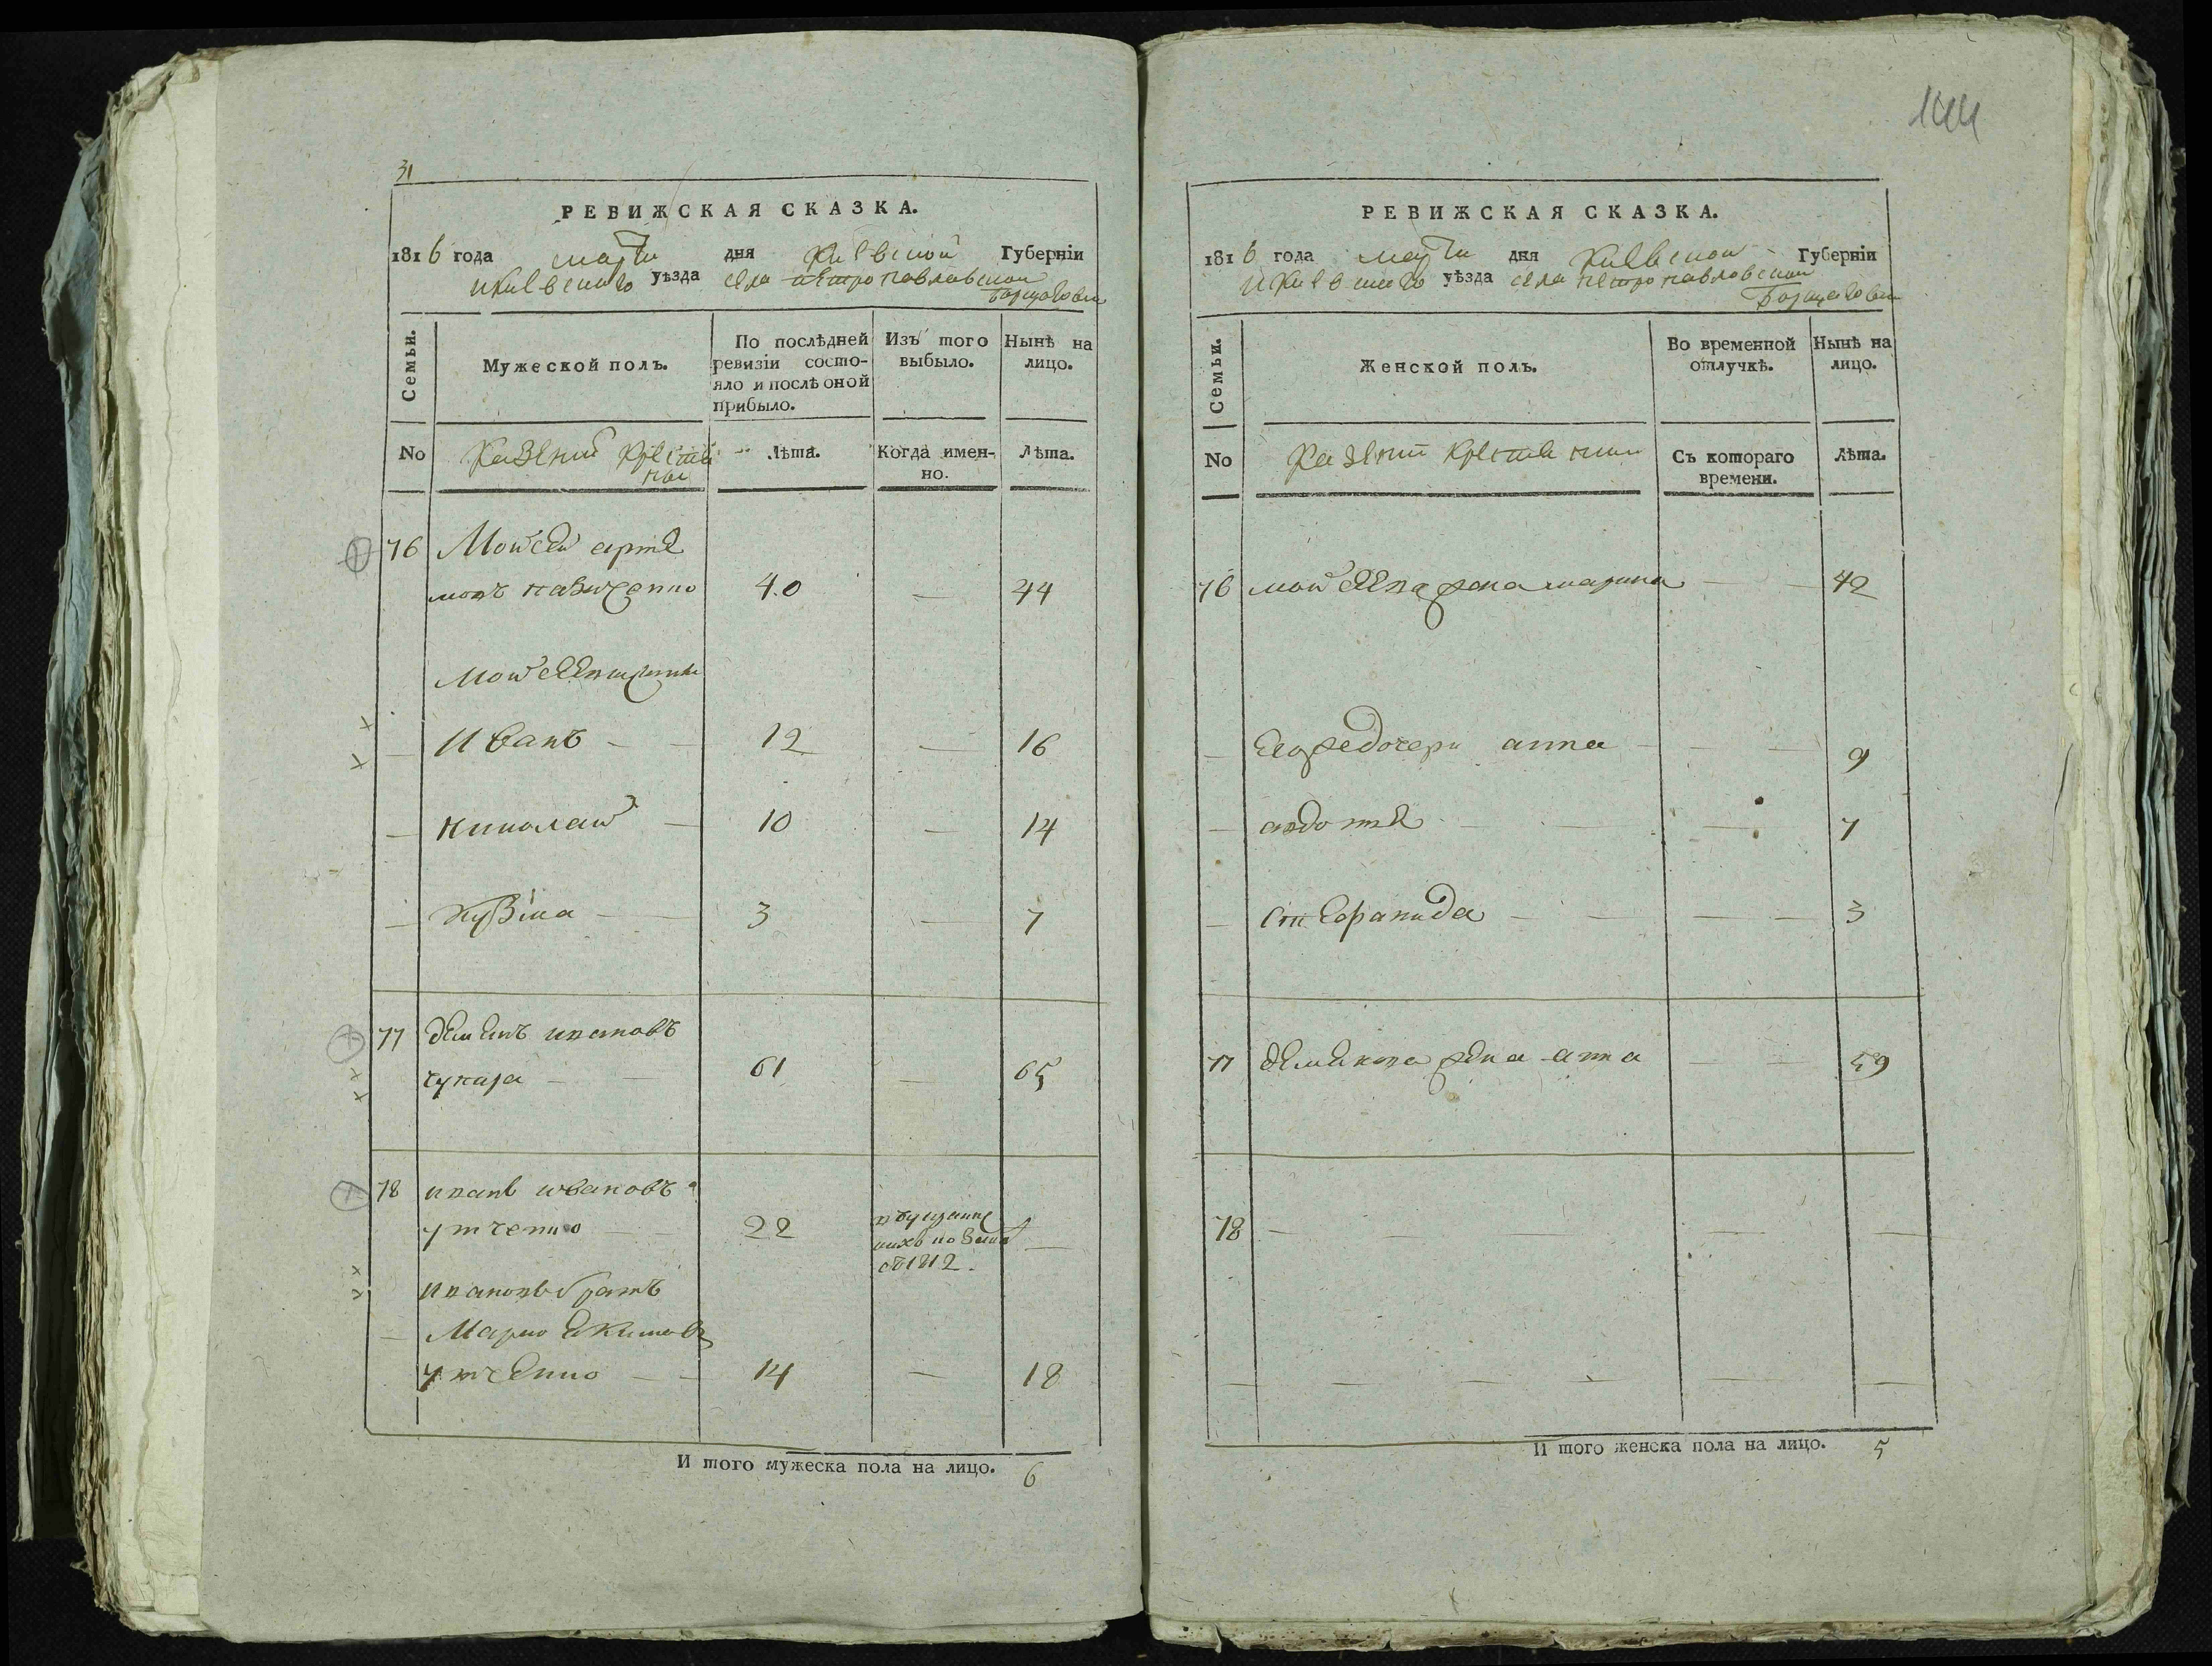 31
РЕВИЖСКАЯ СКАЗКА.
1816 года марта дня Киевской Губерніи
и Киевского уѣзда села петропавловской
Борщаговки
Семьи.
Мужеской полъ.
По послѣдней ревизіи состо-
яло и послѣ оной
прибыло.
Изъ того
выбыло.
Нынѣ на
лицо.
No
Казеннии Крестья
нои
Лѣта.
Когда имен-
но.
Лѣта.
76 Моисей арте
мовъ 40 — 44
Моисеевы
— Иванъ — — 12 — 16
— николай — 10 — 14
— Кузма — — 3 — 7
77 демянъ ивановъ
— — 61 — 65
78 иванъ ивановъ
утченко — — 22 —
с 1812.
ивановъ братъ
— Марко Екимовъ
утченко — — 14 — 18
И того мужеска пола на лицо. 6
144
РЕВИЖСКАЯ СКАЗКА.
1816 года марта дня Киевской Губерніи
и Киевского уѣзда села петропавловской
Борщаговки
Семьи.
Женской полъ.
Во временной
отлучкѣ.
Нынѣ на
лицо.
No
Казеннии Крестьянки
Съ котораго
времени.
Лѣта.
76 моисеева жена марина — — 42
— Егоже дочери анна — — — 9
— авдотя — — — 7
— степанида — — — — 3
77 демянова жена анна — — 59
78 — — — — — —
— — — — — —
И того женска пола на лицо. 5